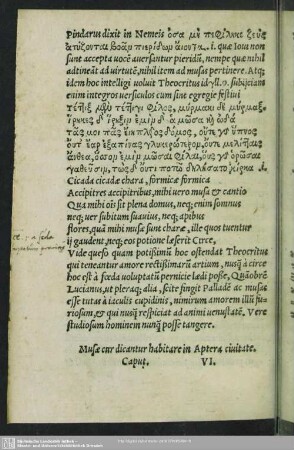 Pindarus dixit in Nemeis ὅσα μὴ πεφίληκε ζεὺς
ἀτύζονται βοὰν πιερίδων ἀΐοντα. i. quæ Ioui non
sunt accepta uocẽ auersantur pieridũ, nempe quæ nihil
adtineãt ad uirtutẽ, nihil item ad musas pertinere. Atq;
idem hoc intelligi uoluit Theocritus idyll. 9. subijciam
enim integros uersiculos cum sint egregie festiui
τέττιξ μὲν τέττιγι φίλος, μύρμακι δὲ μύρμαξ.
ἴρηκες δ' ἴρηξιν ἐμὶν δ' ἁ μῶσα κὴ ᾠδὰ
τᾶς μοι πᾶς εἴη πλεῖος δόμος, οὔτε γὰρ ὕπνος
οὔτ' ἔαρ ἐξαπίνας γλυκερώτερον, οὔτε μελίσσαις
ἄνθεα, ὅσσον ἐμὶν μῶσαι φίλαι, οὓς γὰρ ὁρῶσαι
γαθεῦσιν, τὼς δ' οὔτι ποτῷ δηλήσατο κίρκα .i.
Cicada cicadæ chara, formicæ formica
Accipitres accipitribus, mihi uero musa & cantio
Qua mihi oĩs sit plena domus, neq; enim somnus
neq; uer subitum suauius, neq; apibus
flores, quã mihi musæ sunt charæ, ille quos tuentur
ij gaudent, neq; eos potione læserit Circe,
Vide quæso quam potissimũ hoc ostendat Theocritus
qui teneantur amore rectissimarũ artium, nusq̃ à circe
hoc est à fœda uoluptatũ pernicie lædi posse, Quãobrẽ
Lucianus, ut pleraq; alia, scite fingit Palladẽ ac musas
esse tutas à iaculis cupidinis, nimirum amorem illũ furiosum,
& qui nusq̃ respiciat ad animi uenustatẽ. Vere
studiosum hominem nunq̃ posse tangere.
Musæ cur dicantur habitare in Aptera ciuitate.
Caput. VI.